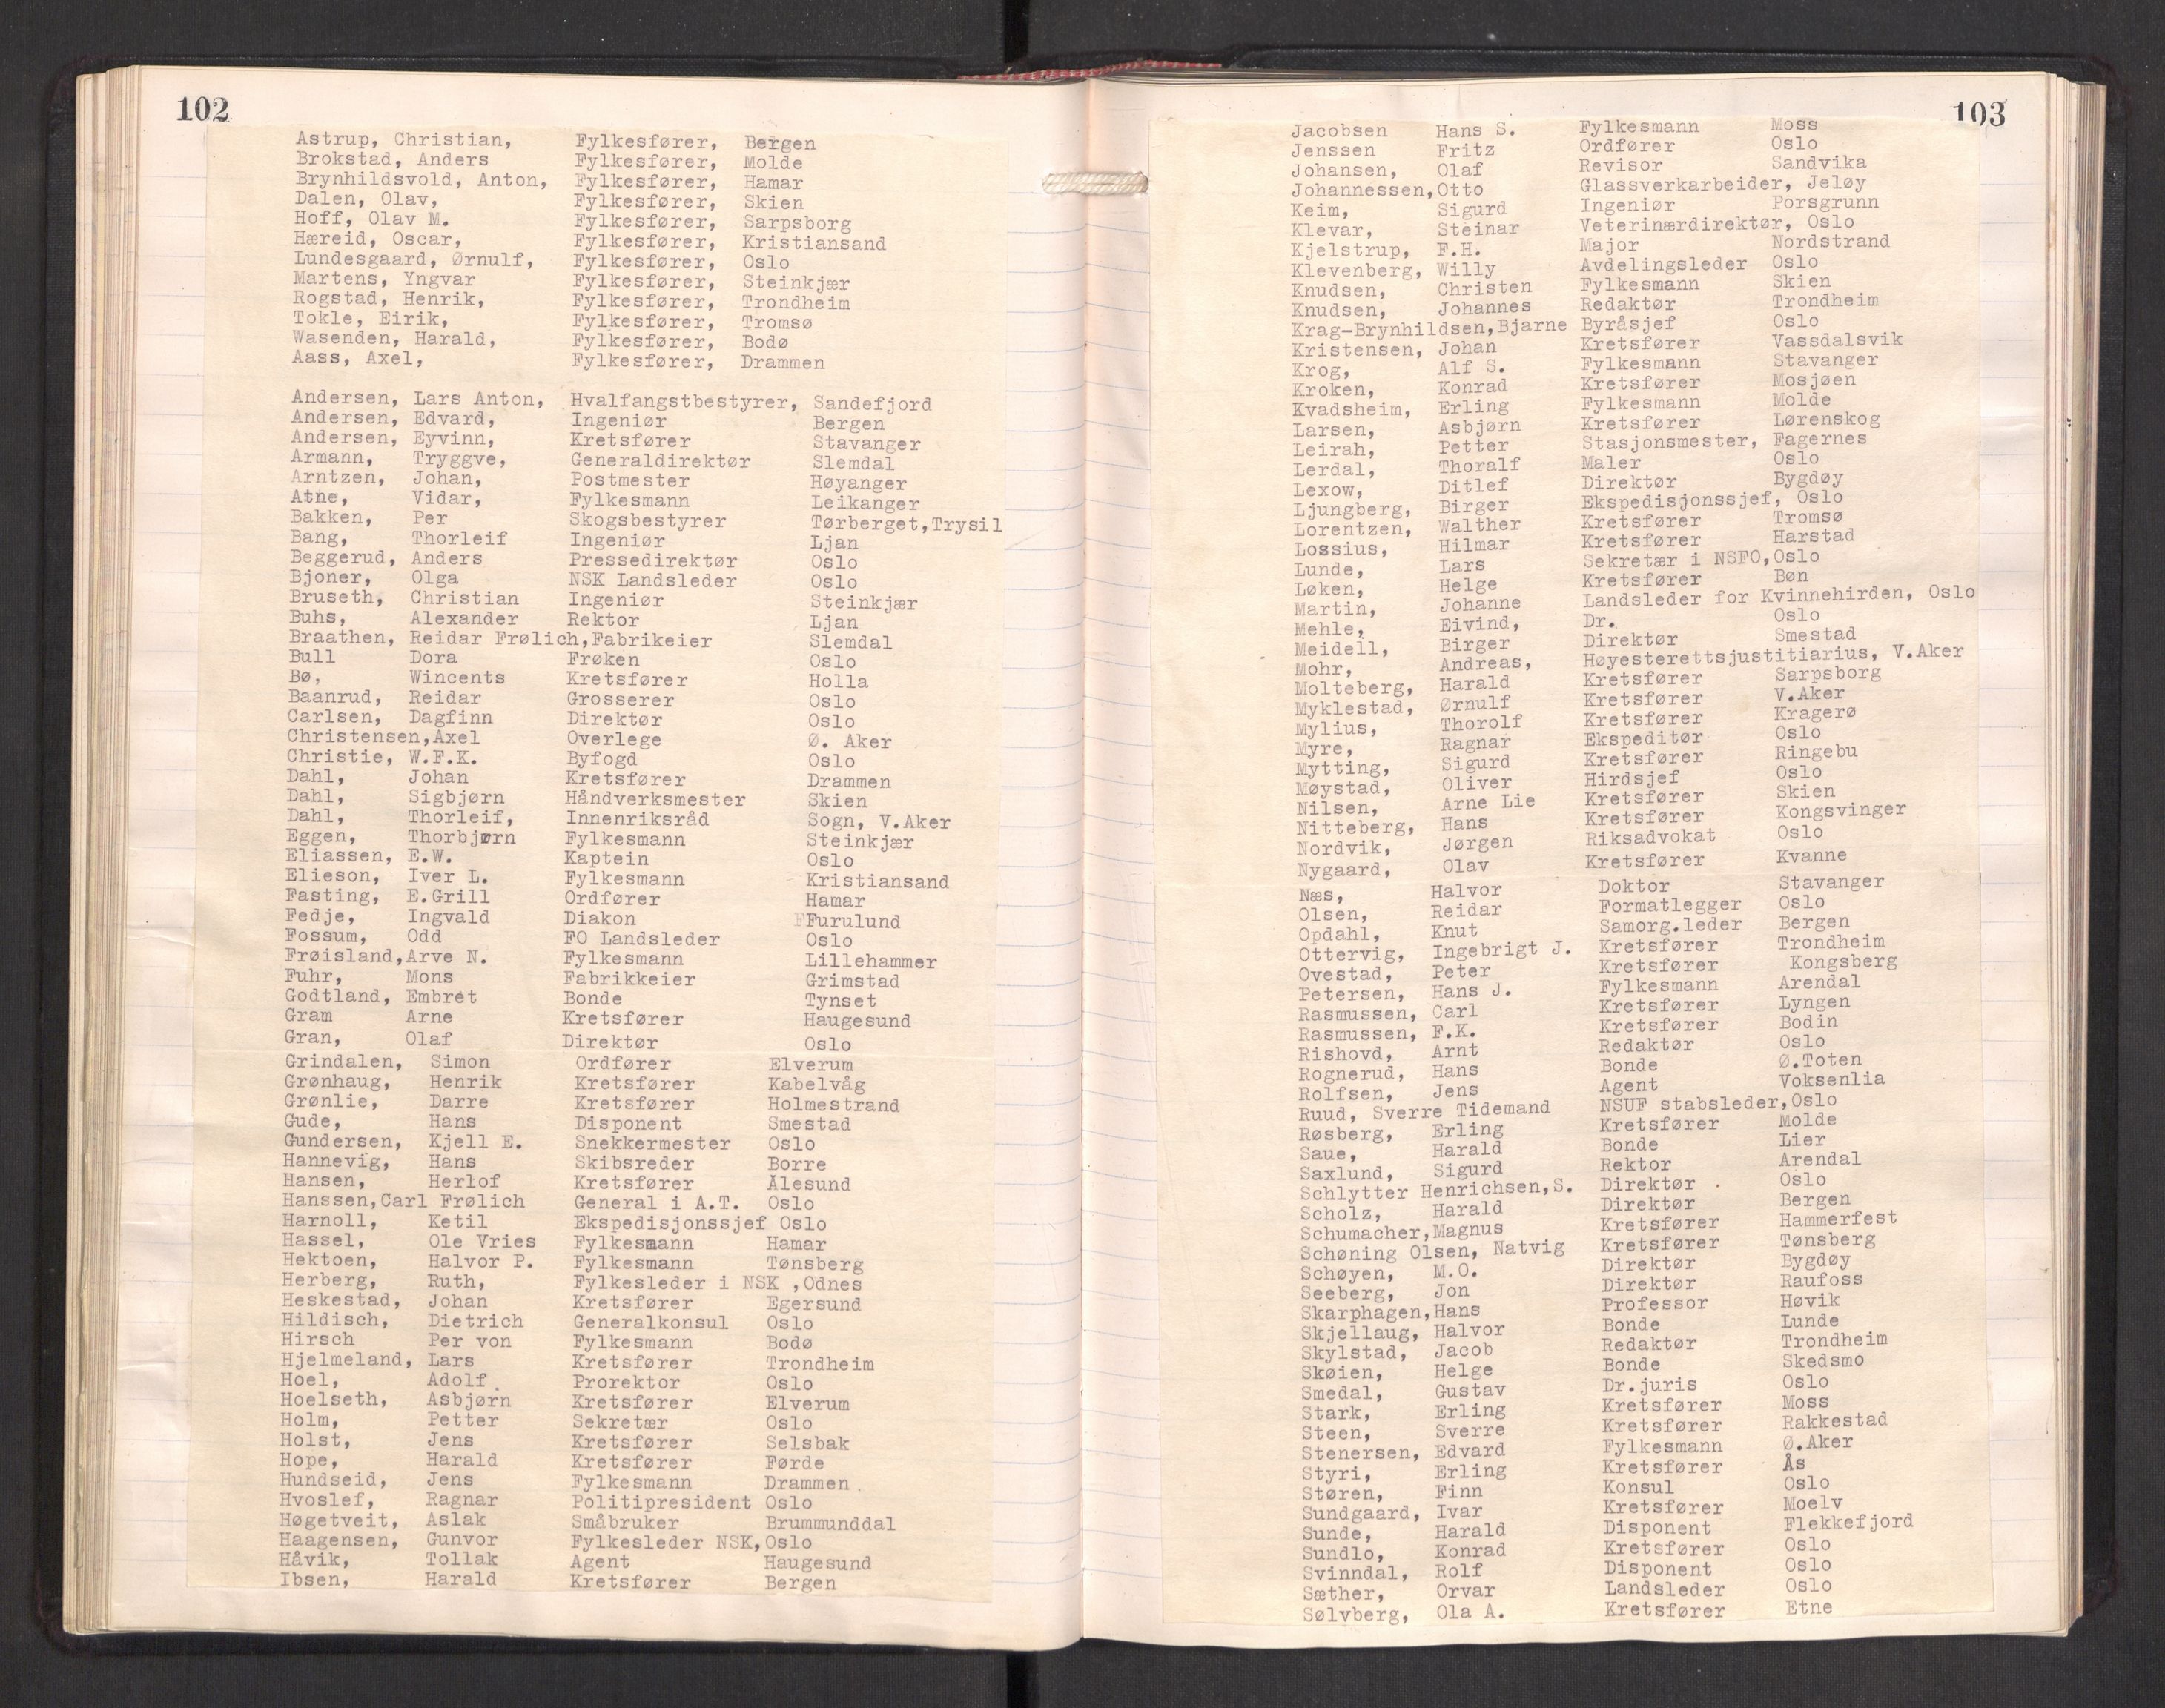 102
Astrup, Christian, Fylkesfører, Bergen
Brokstad, Anders Fylkesfører, Molde
Brynhildsvold, Anton, Fylkesfører, Hamar
Dalen, Olav, Fylkesfører, Skien
Hoff, Olav M. Fylkesfører, Sarpsborg
Hæreid, Oscar, Fylkesfører, Kristiansand
Lundesgaard, Ørnulf, Fylkesfører, Oslo
Martens, Yngvar Fylkesfører, Steinkjær
Rogstad, Henrik, Fylkesfører, Trondheim
Tokle, Eirik, Fylkesfører, Tromsø
Wasenden, Harald, Fylkesfører, Bodø
Aass, Axel, Fylkesfører, Drammen
Andersen, Lars Anton, Hvalfangstbestyrer, Sandefjord
Andersen, Edvard, Ingeniør Bergen
Andersen, Eyvinn, Kretsfører Stavanger
Armann, Tryggve, Generaldirektør Slemdal
Arntzen, Johan, Postmester Høyanger
Atne, Vidar, Fylkesmann Leikanger
Bakken, Per Skogsbestyrer Tørberget,Trysil
Bang, Thorleif Ingeniør Ljan
Beggerud, Anders Pressedirektør Oslo
Bjoner, Olga NSK Landsleder Oslo
Bruseth, Christian Ingeniør Steinkjær
Buhs, Alexander Rektor Ljan
Braathen, Reidar Frølich,Fabrikeier Slemdal
Bull Dora Frøken Oslo
Bø, Wincents Kretsfører Holla
Baanrud, Reidar Grosserer Oslo
Carlsen, Dagfinn Direktør Oslo
Christensen,Axel Overlege Ø. Aker
Christie, W.F.K. Byfogd Oslo
Dahl, Johan Kretsfører Drammen
Dahl, Sigbjørn Håndverksmester Skien
Dahl, Thorleif, Innenriksråd Sogn, V.Aker
Eggen, Thorbjørn Fylkesmann Steinkjær
Eliassen, E.W. Kaptein Oslo
Elieson, Iver L. Fylkesmann Kristiansand
Fasting, E.Grill Ordfører Hamar
Fedje, Ingvald Diakon FFurulund
Fossum, Odd FO Landsleder Oslo
Frøisland,Arve N. Fylkesmann Lillehammer
Fuhr, Mons Fabrikkeier Grimstad
Godtland, Embret Bonde Tynset
Gram Arne Kretsfører Haugesund
Gran, Olaf Direktør Oslo
Grindalen, Simon Ordfører Elverum
Grønhaug, Henrik Kretsfører Kabelvåg
Grønlie, Darre Kretsfører Holmestrand
Gude, Hans Disponent Smestad
Gundersen, Kjell E. Snekkermester Oslo
Hannevig, Hans Skibsreder Borre
Hansen, Herlof Kretsfører Ålesund
Hanssen,Carl Frølich General i A.T. Oslo
Harnoll, Ketil Ekspedisjonssjef Oslo
Hassel, Ole Vries Fylkesmann Hamar
Hektoen, Halvor P. Fylkesmann Tønsberg
Herberg, Ruth, Fylkesleder i NSK ,Odnes
Heskestad, Johan Kretsfører Egersund
Hildisch, Dietrich Generalkonsul Oslo
Hirsch Per von Fylkesmann Bodø
Hjelmeland, Lars Kretsfører Trondheim
Hoel, Adolf Prorektor Oslo
Hoelseth, Asbjørn Kretsfører Elverum
Holm, Petter Sekretær Oslo
Holst, Jens Kretsfører Selsbak
Hope, Harald Kretsfører Førde
Hundseid, Jens Fylkesmann Drammen
Hvoslef, Ragnar Politipresident Oslo
Høgetveit, Aslak Småbruker Brummunddal
Haagensen, Gunvor Fylkesleder NSK,Oslo
Håvik, Tollak Agent Haugesund
Ibsen, Harald Kretsfører Bergen
103
Jacobsen Hans S. Fylkesmann Moss
Jenssen Fritz Ordfører Oslo
Johansen, Olaf Revisor Sandvika
Johannessen,Otto Glassverkarbeider, Jeløy
Keim, Sigurd Ingeniør Porsgrunn
Klevar, Steinar Veterinærdirektør, Oslo
Kjelstrup, F.H. Major Nordstrand
Klevenberg, Willy Avdelingsleder Oslo
Knudsen, Christen Fylkesmann Skien
Knudsen, Johannes Redaktør Trondheim
Krag-Brynhildsen,Bjarne Byråsjef Oslo
Kristensen, Johan Kretsfører Vassdalsvik
Krog, Alf S. Fylkesmann Stavanger
Kroken, Konrad Kretsfører Mosjøen
Kvadsheim, Erling Fylkesmann Molde
Larsen, Asbjørn Kretsfører Lørenskog
Leirah, Petter Stasjonsmester, Fagernes
Lerdal, Thoralf Maler Oslo
Lexow, Ditlef Direktør Bygdøy
Ljungberg, Birger Ekspedisjonssjef, Oslo
Lorentzen, Walther Kretsfører Tromsø
Lossius, Hilmar Kretsfører Harstad
Lunde, Lars Sekretær i NSFO,Oslo
Løken, Helge Kretsfører Bøn
Martin, Johanne Landsleder for Kvinnehirden, Oslo
Mehle, Eivind, Dr. Oslo
Meidell, Birger Direktør Smestad
Mohr, Andreas, Høyesterettsjustitiarius, V.Aker
Molteberg, Harald Kretsfører Sarpsborg
Myklestad, Ørnulf Kretsfører V.Aker
Mylius, Thorolf Kretsfører Kragerø
Myre, Ragnar Ekspeditør Oslo
Mytting, Sigurd Kretsfører Ringebu
Møystad, Oliver Hirdsjef Oslo
Nilsen, Arne Lie Kretsfører Skien
Nitteberg, Hans Kretsfører Kongsvinger
Nordvik, Jørgen Riksadvokat Oslo
Nygaard, Olav Kretsfører Kvanne
Næs, Halvor Doktor Stavanger
Olsen, Reidar Formatlegger Oslo
Opdahl, Knut Samorg.leder Bergen
Ottervig, Ingebrigt J. Kretsfører Trondheim
Ovestad, Peter Kretsfører Kongsberg
Petersen, Hans J. Fylkesmann Arendal
Rasmussen, Carl Kretsfører Lyngen
Rasmussen, F.K. Kretsfører Bodin
Rishovd, Arnt Redaktør Oslo
Rognerud, Hans Bonde Ø.Toten
Rolfsen, Jens Agent Voksenlia
Ruud, Sverre Tidemand NSUF stabsleder,Oslo
Røsberg, Erling Kretsfører Molde
Saue, Harald Bonde Lier
Saxlund, Sigurd Rektor Arendal
Schlytter Henrichsen,S. Direktør Oslo
Scholz, Harald Direktør Bergen
Schumacher,Magnus Kretsfører Hammerfest
Schøning Olsen, Natvig Kretsfører Tønsberg
Schøyen, M.O. Direktør Bygdøy
Seeberg, Jon Direktør Raufoss
Skarphagen,Hans Professor Høvik
Skjellaug, Halvor Bonde Lunde
Skylstad, Jacob Redaktør Trondheim
Skøien, Helge Bonde Skedsmo
Smedal, Gustav Dr.juris Oslo
Stark, Erling Kretsfører Moss
Steen, Sverre Kretsfører Rakkestad
Stenersen, Edvard Fylkesmann Ø.Aker
Styri, Erling Kretsfører Ås
Støren, Finn Konsul Oslo
Sundgaard, Ivar Kretsfører Moelv
Sunde, Harald Disponent Flekkefjord
Sundlo, Konrad Kretsfører Oslo
Svinndal, Rolf Disponent Oslo
Sæther, Orvar Landsleder Oslo
Sølvberg, Ola A. Kretsfører Etne